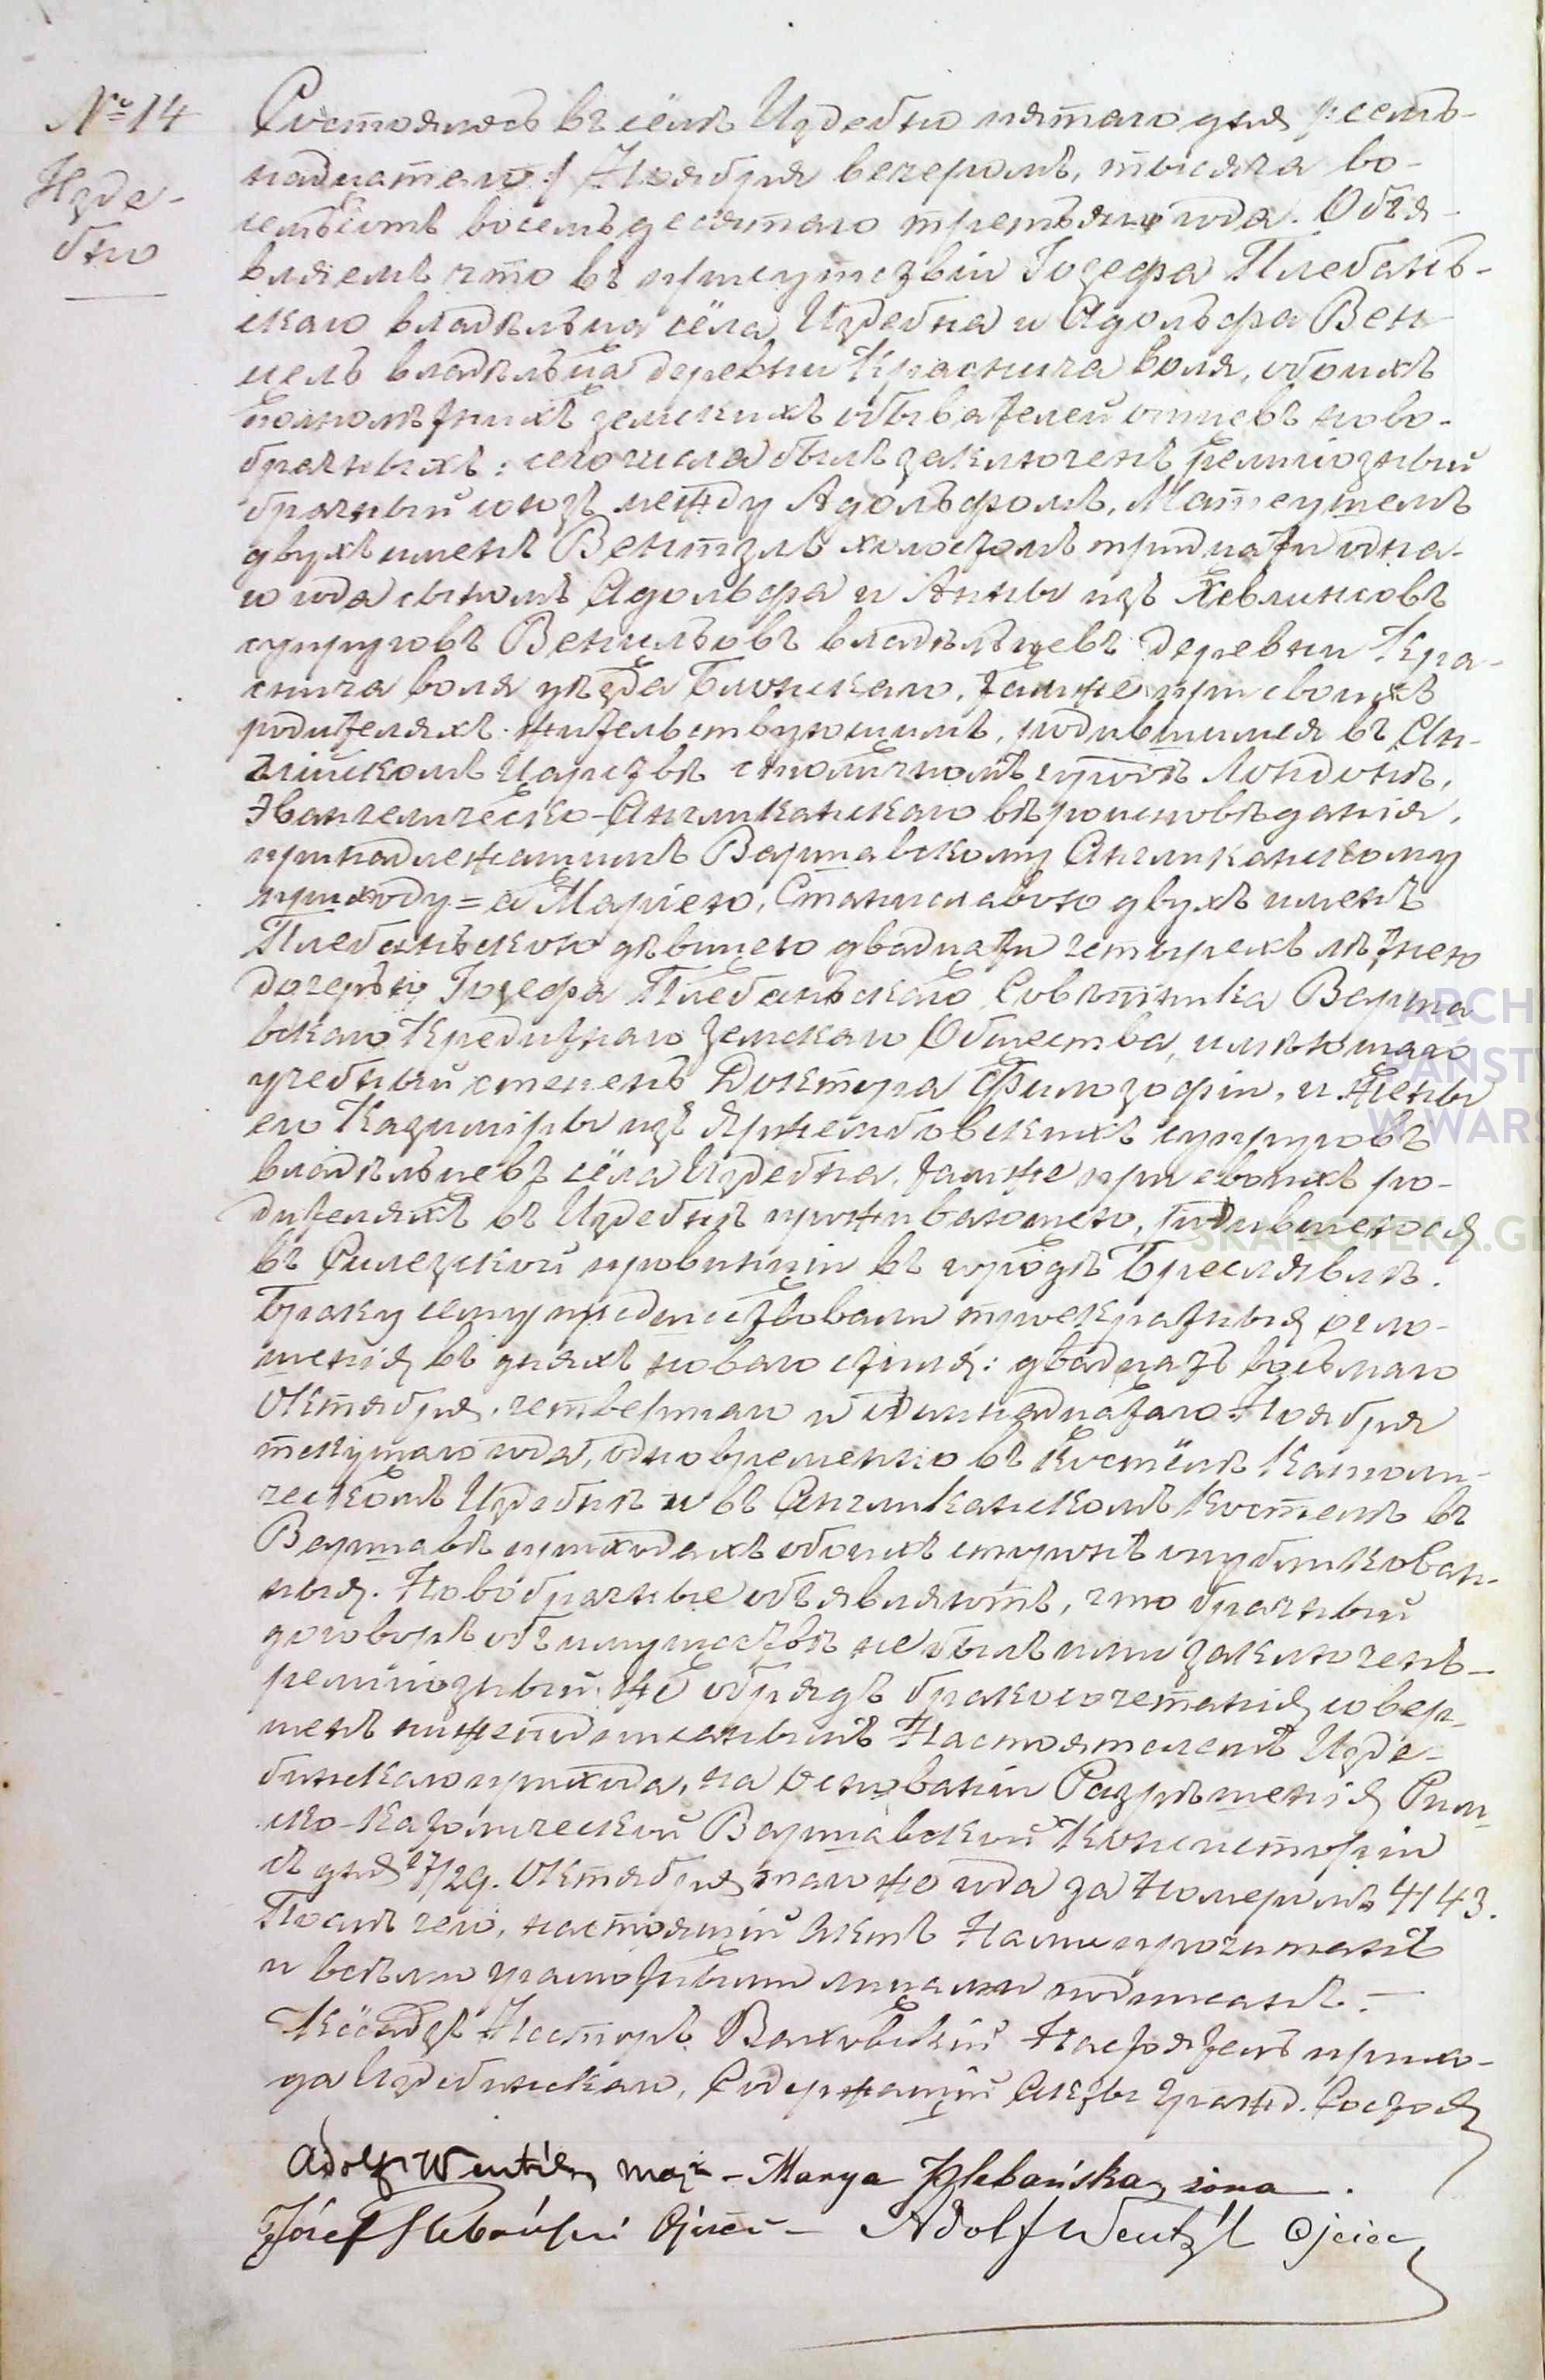 № 14
Изде-
бно
Состоялось въ селѣ Издебно пятаго дня /: семь-
надцатаго :/ Ноября вечеромъ, тысяча во-
семьсотъ восемьдесятаго третьяго года. Объя-
вляемъ что въ присутствіи Іозефа Плебань-
скаго владѣльца сёла Издебна и Адольфа Вен-
цель владѣльца деревни Краснича воля, обоихъ
полнолѣтнихъ земскихъ обывателей отцевъ ново-
брачныхъ: сего числа былъ заключенъ религіозный
брачный союзъ между Адольфомъ, Матеушемъ
двухъ именъ Вентзлъ холостомъ тридцати одна-
го года сыномъ Адольфа и Анны изъ
супруговъ Венцльовъ владѣльцевъ деревни Кра-
снича воля уѣзда Блонскаго, тамже при своихъ
родителяхъ жительствующимъ, родившимся въ Ан-
глійскомъ Царствѣ столичномъ городѣ Лондонѣ,
Эвангелическо-Англиканскаго вѣроисповѣданія,
принадлежащимъ Варшавскому Англиканскому
приходу = а Маріею, Станиславою двухъ именъ
Плебаньскою дѣвицею двадцати четырехъ лѣтнею
дочерью Іозефа Плебаньскаго Совѣтника Варша
вскаго Кредитнаго Земскаго Общества, имѣющаго
учебный степень Доктора Филозофіи, и жены
его Казиміры изъ Яржембовскихъ супруговъ
владѣльцевъ сёла Издебна, тамже при своихъ ро-
дителяхъ въ Издебнѣ проживающею, родившеюся
въ Силезской провинціи въ городѣ Бреславлѣ.
Браку сему предшествовали троекратныя огло-
шенія въ дняхъ новаго стиля: двадцать восьмаго
Октября, четвертаго и одиннадцатаго Ноября
текущаго года, одновременно въ Костёлѣ Католи-
ческомъ Издебнѣ и въ Англиканскомъ Костелѣ въ
Варшавѣ приходахъ обоихъ сторонъ опубликован-
ныя. Новобрачные объявляютъ, что брачный
договоръ объ имуществѣ не былъ ими заключенъ —
религіозный же обрядъ бракосочетанія совер-
шенъ нижеподписаннымъ Настоятелемъ Изде-
бинскаго прихода, на основаніи Разрѣшенія Рим-
ско-Католической Варшавской Консисторіи
съ дня 17/29. Октября того же года за Номеромъ 4143.
Послѣ чего, настоящій Актъ Нами прочитанъ
и всѣми грамотными лицами подписанъ. —
Ксёндзъ Несторъ Настоятель прихо-
да Издебинскаго, Содержащій Акты Гражд. Состоя
Adolf Wentzl, mąż – Marya Plebańska, żona.
Józef Plebański Ojciec – Adolf Wentzl Ojciec
ARCH
PAŃST
W WARS
SKANOTEKA.GE